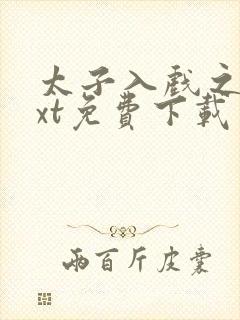 太子入戏之
xt免費下載
兩百斤皮囊